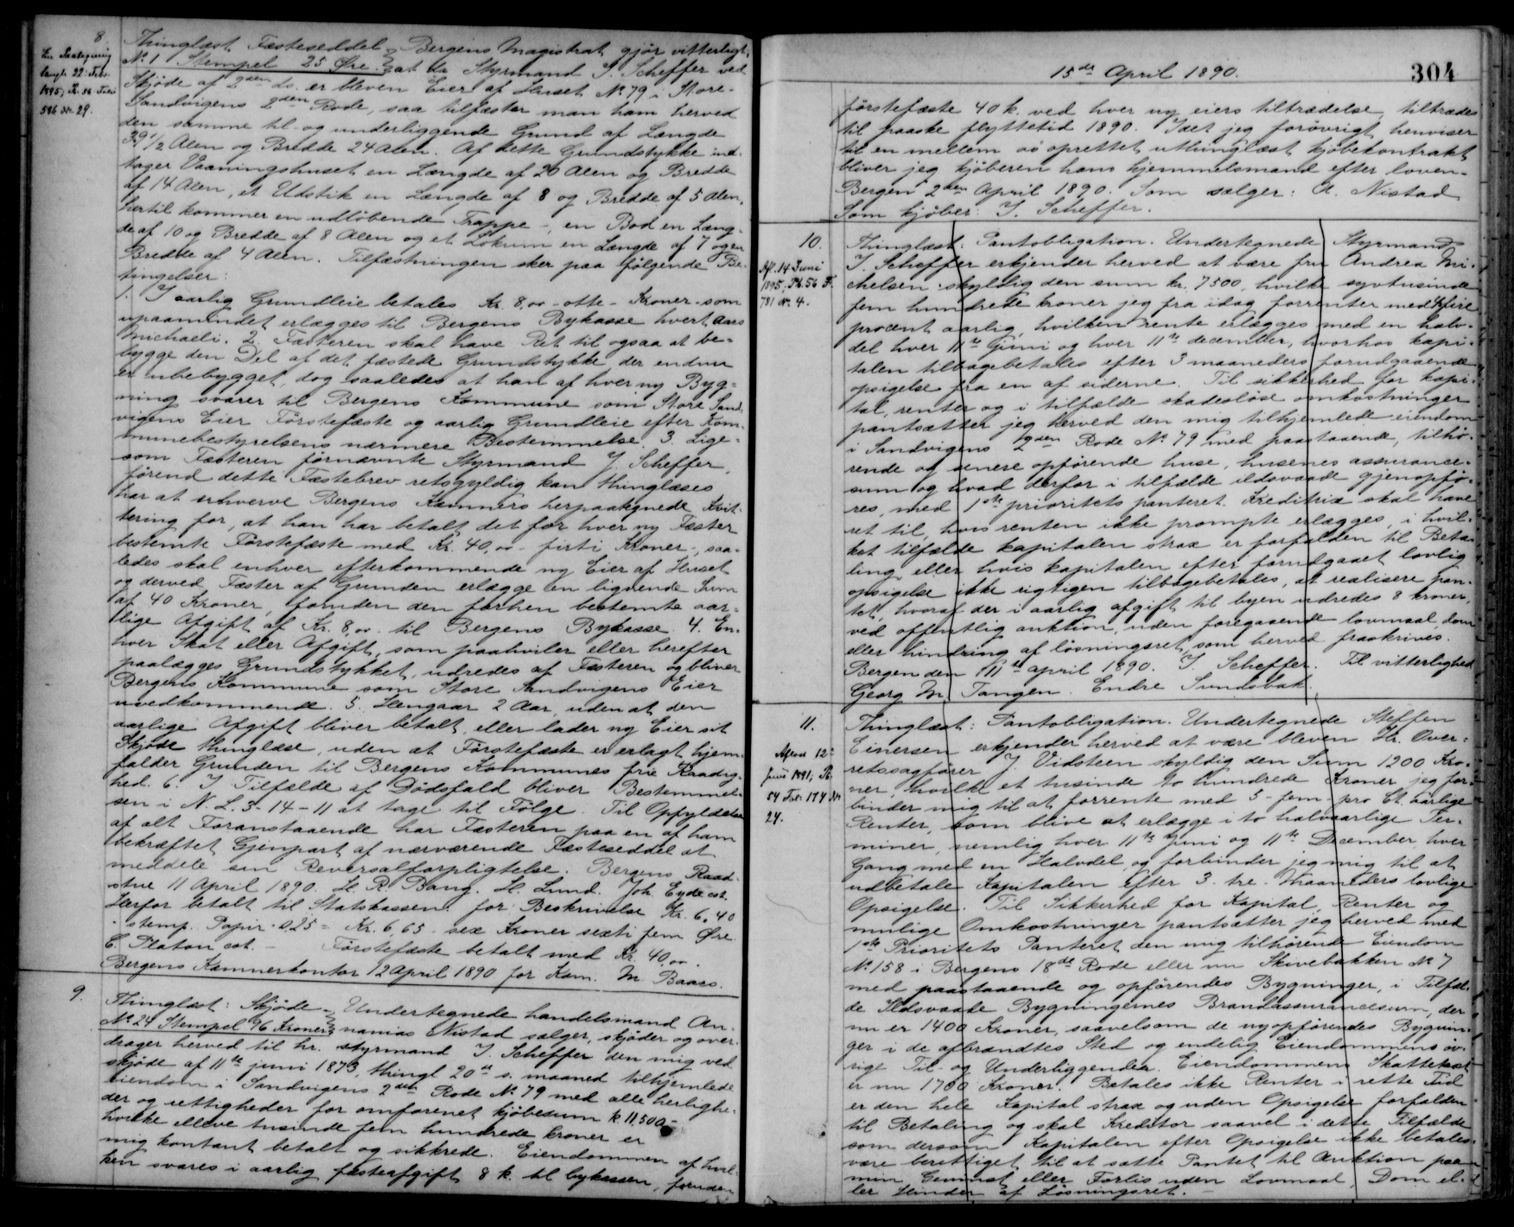 8.
En Paategning
tingl. 22. Febr.
1895, P. 56 Folio
586 No. 29.
Thinglæst Fæsteseddel Bergens Magistrat gjør vitterligt,
No 1 Stempel 25 Øre at da Styrmand J. Scheffer ved
Skjøde af 2den ds. er bleven Eier af Huset No 79 i Store-
Sandvigens 2den Rode, saa tilfæster man ham herved
den samme til- og underliggende Grund af Længde
39 1/2 Alen og Bredde 24 Alen. Af dette Grundstykke ind-
tager Vaaningshuset en Længde af 20 Alen og Bredde
af 14 Alen, et Udstik en Længde af 8 og Bredde af 5 Alen,
hertil kommer en udløbende Trappe -, en Bod en Læng-
de af 10 og Bredde af 8 Alen og et Lokum en Længde af 7 og en
Bredde af 4 Alen. Tilfæstningen sker paa følgende Be-
tingelser:
1. I aarlig Grundleie betales Kr. 8,00 - otte - Kroner - som
upaamindet erlægges til Bergens Bykasse hvert Aars
Michaeli. 2. Fæsteren skal have Ret til ogsaa at be-
bygge den Del af det fæstede Grundstykke der endnu
er ubebygget, dog saaledes at han af hver ny Byg-
ning svarer til Bergens Kommune som Store Sand-
vigens Eier Førstefæste og aarlig Grundleie efter Kom-
munebestyrelsens nærmere Bestemmelse. 3. Lige-
som Fæsteren førnævnte Styrmand J. Scheffer,
førend dette Fæstebrev retsgyldig kan thinglæses
har at erhverve Bergens Kæmners herpaategnede Kvit-
tering for, at han har betalt det for hver ny Fæster
bestemte Førstefæste med Kr. 40,00 - firti Kroner -, saa-
ledes skal enhver efterkommende ny Eier af Huset
og derved Fæster af Grunden erlægge en lignende Sum
af 40 Kroner, foruden den forhen bestemte aar-
lige Afgift af Kr. 8,00 til Bergens Bykasse. 4. En-
hver Skat eller Afgift, som paahviler eller herefter
paalægges Grundstykket, udredes af Fæsteren og bliver
Bergens Kommune som Store Sandvigens Eier
uvedkommende. 5. Hengaar 2 Aar, uden at den
aarlige Afgift bliver betalt, eller lader ny Eier sit
Skjøde thinglæse, uden at Førstefæste er erlagt, hjem-
falder Grunden til Bergens Kommunes frie Raadig-
hed. 6. I Tilfælde af Dødsfald bliver Bestemmel-
sen i N. L. 3-14-11 at tage til Følge. Til Opfyldelse
af alt Foranstaaende har Fæsteren paa en af ham
bekræftet Gjenpart af nærværende Fæsteseddel at
meddele sin Reversalforpligtelse. Bergens Raad-
stue 11 April 1890. H. R. Bang. H. Lund. Joh. Eyde cst.
Herfor betalt til Statskassen for Beskrivelse Kr. 6,40
- stemp. Papir - 0,25 = Kr. 6,65 - sex Kroner sexti fem Øre
C. Platou cst. - Førstefæste betalt med Kr. 40,00.
Bergens Kæmnerkontor 12 April 1890 for Kæm. M. Baars.
9.
Thinglæst: Skjøde - Undertegnede handelsmand An-
No 24 Stempel 96 Kroner nanias Nistad sælger, skjøder og over-
drager herved til hr. styrmand J. Scheffer den mig ved
skjøde af 11te juni 1873, thingl. 20de s. maaned tilhjemlede
eiendom i Sandvigens 2den Rode No 79 med alle herlighe-
der og rettigheder for omforenet kjøbesum k. 11,500,-
hvilke elleve tusinde fem hundrede kroner er
mig kontant betalt og sikkrede. Eiendommen af hvil-
ken svares i aarlig fæsteafgift 8 k. til bykassen, foruden
15de April 1890.
304
førstefæste 40 k. ved hver ny eiers tiltrædelse, tiltrædes
til paaske flyttetid 1890. Idet jeg forøvrigt henviser
til en mellem os oprettet uthinglæst kjøbekontrakt
bliver jeg kjøberen hans hjemmelsmand efter loven.
Bergen 2den April 1890. Som sælger: A. Nistad
Som kjøber: J. Scheffer.
10.
Afl. 14 Juni
1895, Pb. 56 F.
781 No. 4.
Thinglæst: Pantobligation. Undertegnede Styrmand
J. Scheffer erkjender herved at være fru Andrea Mi-
chelsen skyldig den sum kr. 7500, hvilke syvtusinde
fem hundrede kroner jeg fra idag forrenter med 4 fire
procent aarlig, hvilken rente erlægges med en halv-
del hver 11te Juni og hver 11te december, hvorhos kapi-
talen tilbagebetales efter 3 maaneders forudgaaende
opsigelse fra en af siderne. Til sikkerhed for kapi-
tal, renter og i tilfælde skadesløse omkostninger
pantsætter jeg herved den mig tilhjemlede eiendom
i Sandvigens 2den Rode No 79 med paastaaende, tilhø-
rende og senere opførende huse, husenes assurance-
sum og hvad derfor i tilfælde ildsvaade gjenopfø-
res, med 1ste prioritets panteret. Kreditrix skal have
ret til, hvis renten ikke prompte erlægges, i hvil-
ket tilfælde kapitalen strax er forfalden til Beta-
ling, eller hvis kapitalen efter forudgaaet lovlig
opsigelse ikke rigtigen tilbagebetales, at realisere pan-
tet, hvoraf der i aarlig afgift til byen udredes 8 kroner,
ved offentlig auktion, uden foregaaende lovmaal, dom
eller hindring af løsningsret, som herved fraskrives.
Bergen den 11te april 1890. J. Scheffer. Til vitterlighed
Georg M. Tangen. Endre Sundsbak.
11.
Aflæst 12te
Juni 1891, Pb.
54 Fol. 174 No
24.
Thinglæst: Pantobligation. Undertegnede Steffen
Einersen erkjender herved at være bleven Hr. Over-
retssagfører J. Vidsteen skyldig den Sum 1200 Kro-
ner, hvilke et tusinde to hundrede Kroner jeg for-
binder mig til at forrente med 5 - fem - pro Ct. aarlige
Renter, som blive at erlægge i to halvaarlige Ter-
miner, nemlig hver 11te Juni og 11te December, hver
Gang med en Halvdel og forbinder jeg mig til at
udbetale Kapitalen efter 3 - tre - Maaneders lovlige
Opsigelse. Til Sikkerhed for Kapital, Renter og
mulige Omkostninger pantsætter jeg herved med
1ste Prioritets Panteret den mig tilhørende Eiendom
No 158 i Bergens 18de Rode eller nu Skivebakken No 7
med paastaaende og opførendes Bygninger, i Tilfæl-
de Ildsvaade Bygningernes Brandassurancesum, der
nu er 1400 Kroner, saavelsom de nyopførendes Bygnin-
ger i de afbrændtes Sted og endelig Eiendommens øv-
rige Til- og Underliggender. Eiendommens Skattetaxt
er nu 1700 Kroner. Betales ikke Renter i rette Tid
er den hele Kapital strax og uden Opsigelse forfalden
til Betaling og skal Kreditor saavel i dette Tilfælde
som dersom Kapitalen efter Opsigelse ikke betales
være berettiget til at sætte Pantet til Auktion paa
min Gevinst eller Forlis uden Lovmaal, Dom el-
ler Hinder af Løsningsret. -